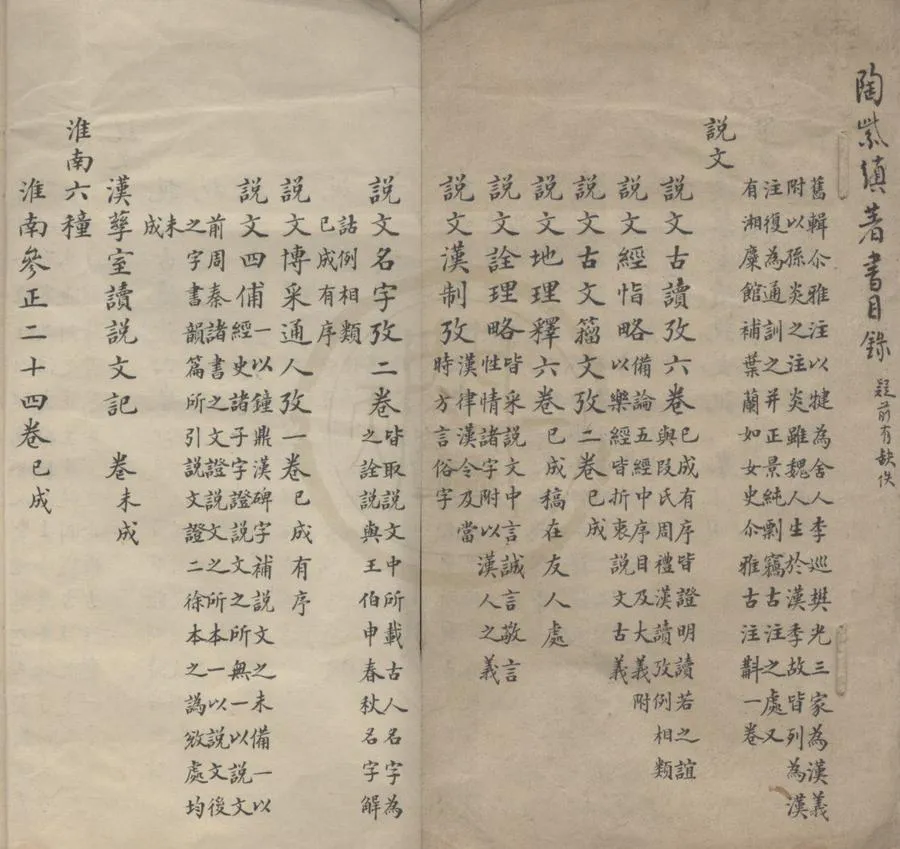 陶紫縝著書目錄 疑前有缺佚
舊輯尒雅注以犍為舍人李巡樊光三家為漢義
附以孫炎之注炎雖魏人生於漢季故皆列為漢
注復為通訓之并正景純剽竊古注之處又
有湘麋館補葉蘭如女史尒雅古注斠一卷
說文
說文古讀攷六卷 已成有序皆證明讀若之誼
與段氏周禮漢讀攷例相類
說文經恉略 備論五經中序目及大義附
以樂經皆折衷說文古義
說文古文籀文攷二卷 已成
說文地理釋六卷 已成稿在友人處
說文詮理略 皆采說文中言誠言敬言
性情諸字附以漢人之義
說文漢制攷 漢律漢令及當
時方言俗字
說文名字攷二卷 皆取說文中所載古人名字為
之詮說與王伯申春秋名字解
詁例相類
已成有序
說文博采通人攷一卷 已成有序
說文四俌 一以鐘鼎漢碑字補說文之未備一以
經史諸子字證說文之所無一以說文
前周秦諸書之文證說文之所本一以說文後
之字書韻篇所引說文證二徐本之譌敓處均
未
成
漢孳室讀說文記 卷 未成
淮南六種
淮南參正二十四卷 已成